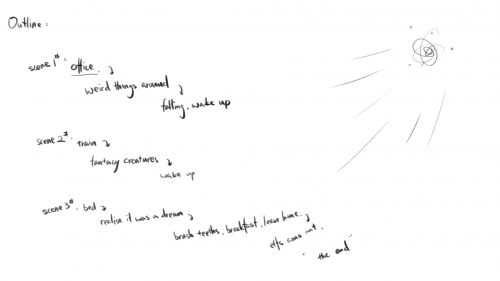 Outline :
scene 1# : office.
weird things around
falling, wake up
scene 2# : train
fantacy creatures
wake up
scene 3# . bed
realise it was a dream
brush teeths, breakfast, leave home.
elfs come out.
" the end "